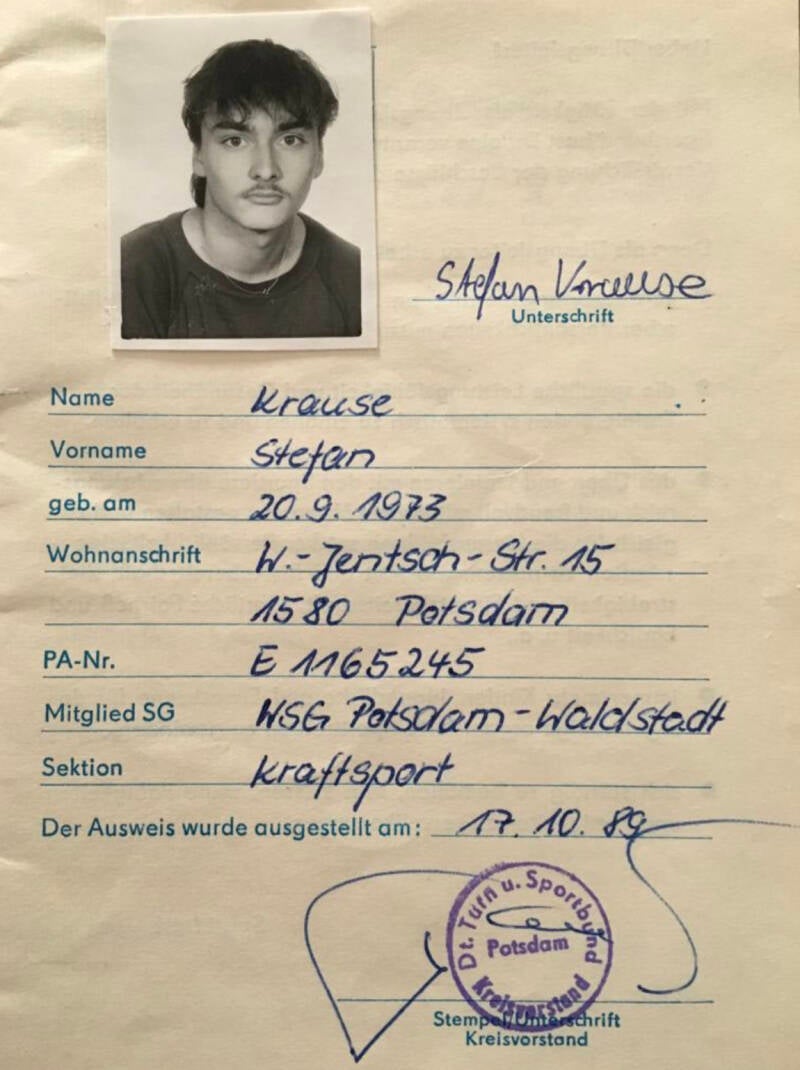 Stefan Krause
Unterschrift
Name Krause
Vorname Stefan
geb. am 20.9.1973
Wohnanschrift W.-Jentsch-Str. 15
1580 Potsdam
PA-Nr. E 1165245
Mitglied SG WSG Potsdam-Waldstadt
Sektion Kraftsport
Der Ausweis wurde ausgestellt am: 17.10.89
Dt. Turn u. Sportbund
Potsdam
Kreisvorstand
Stempel/Unterschrift
Kreisvorstand